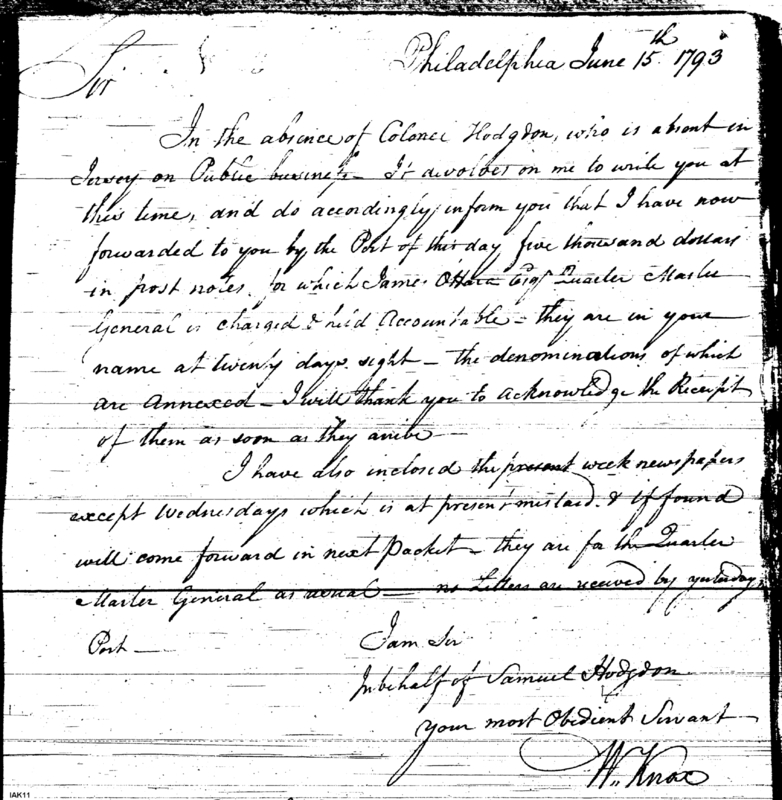 Philadelphia June 15th 1793
Sir
In the absence of Colonel Hodgdon, who is absent in
Jersey on Public business – It devolves on me to write you at
this time, and do accordingly inform you that I have now
forwarded to you by the Post of this day five thousand dollars
in post notes, for which James OHara Esqr Quarter Master
General is charged & held Accountable – they are in your
name at twenty days sight – the denominations of which
are annexed – I will thank you to acknowledge the Receipt
of them as soon as they arrive –
I have also inclosed the present week newspapers
except Wednesdays which is at present mislaid. & if found
will come forward in next Packet – they are for the Quarter
Master General as usual – no Letters are received by yesterdays
Post –
I am Sir
In behalf of Samuel Hodgdon
your most Obedient Servant
W. Knox
IAK11